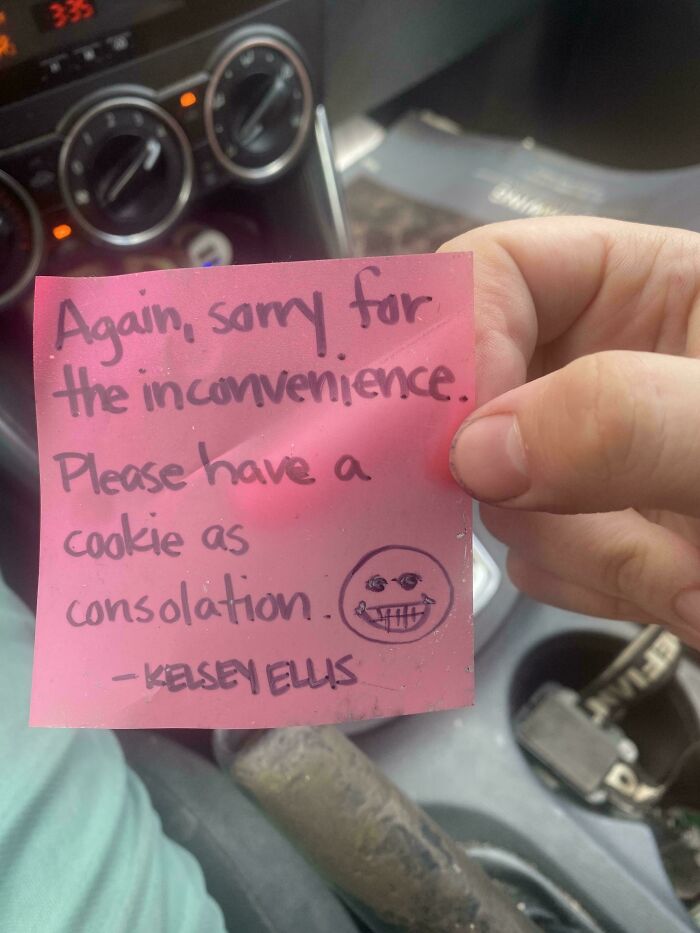 3:35
Again, sorry for
the inconvenience.
Please have a
cookie as
consolation.
- KELSEY ELLIS